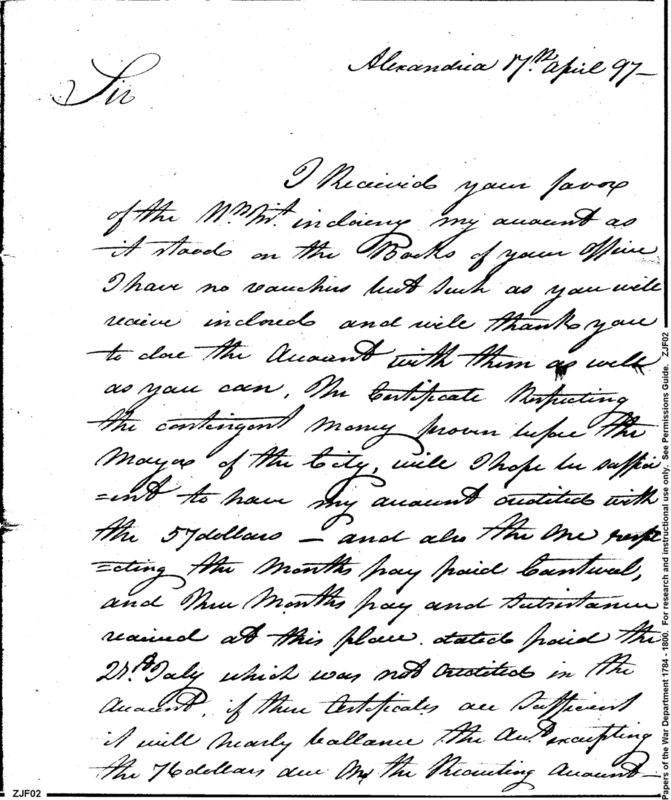 Alexandria 17th April 97 —
Sir
I Receivd your favor
of the Int. inclosing my account as
it stood on the Books of your Office
I have no vouchers but such as you will
receive inclosed and will thank you
to close the Account with them as well
as you can. The Certificate Respecting
the contingent Money proven before the
Mayor of the City, will I hope be suffici
=ent to have my account credited with
the 57 dollars — and also the One resp
=ecting the Months pay paid Cantwal,
and Three Months pay and Subsistance
received at this place dated paid the
July which was not Credited in the
Account, if these Certificates are Sufficient
it will nearly ballance the Act. excepting
the 76 dollars due on the Recruiting Account —
ZJF02
Papers of the War Department 1784 - 1800. For research and instructional use only. See Permissions Guide. ZJF02